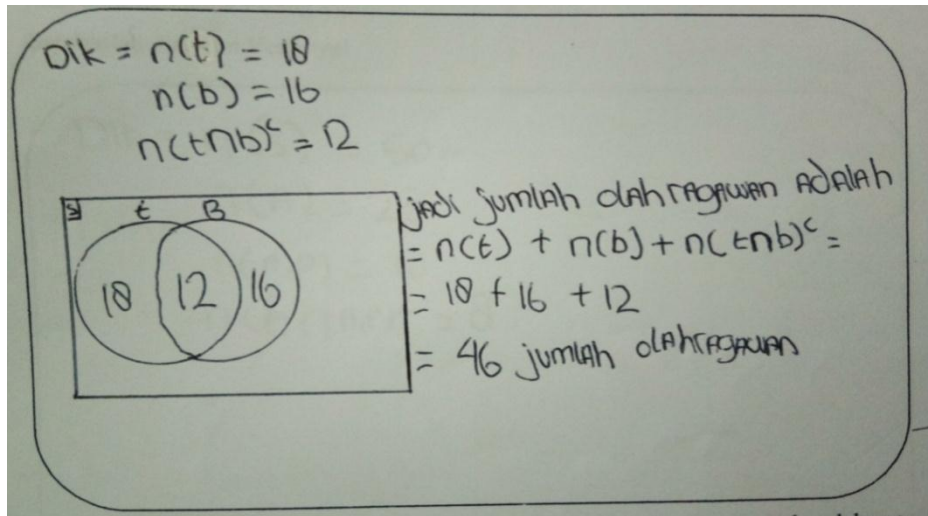 Dik = n(t) = 18
n(b) = 16
n(t∩b)ᶜ = 12
S t B
18 12 16
jadi jumlah olahragawan adalah
= n(t) + n(b) + n(t∩b)ᶜ =
= 18 + 16 + 12
= 46 jumlah olahragawan